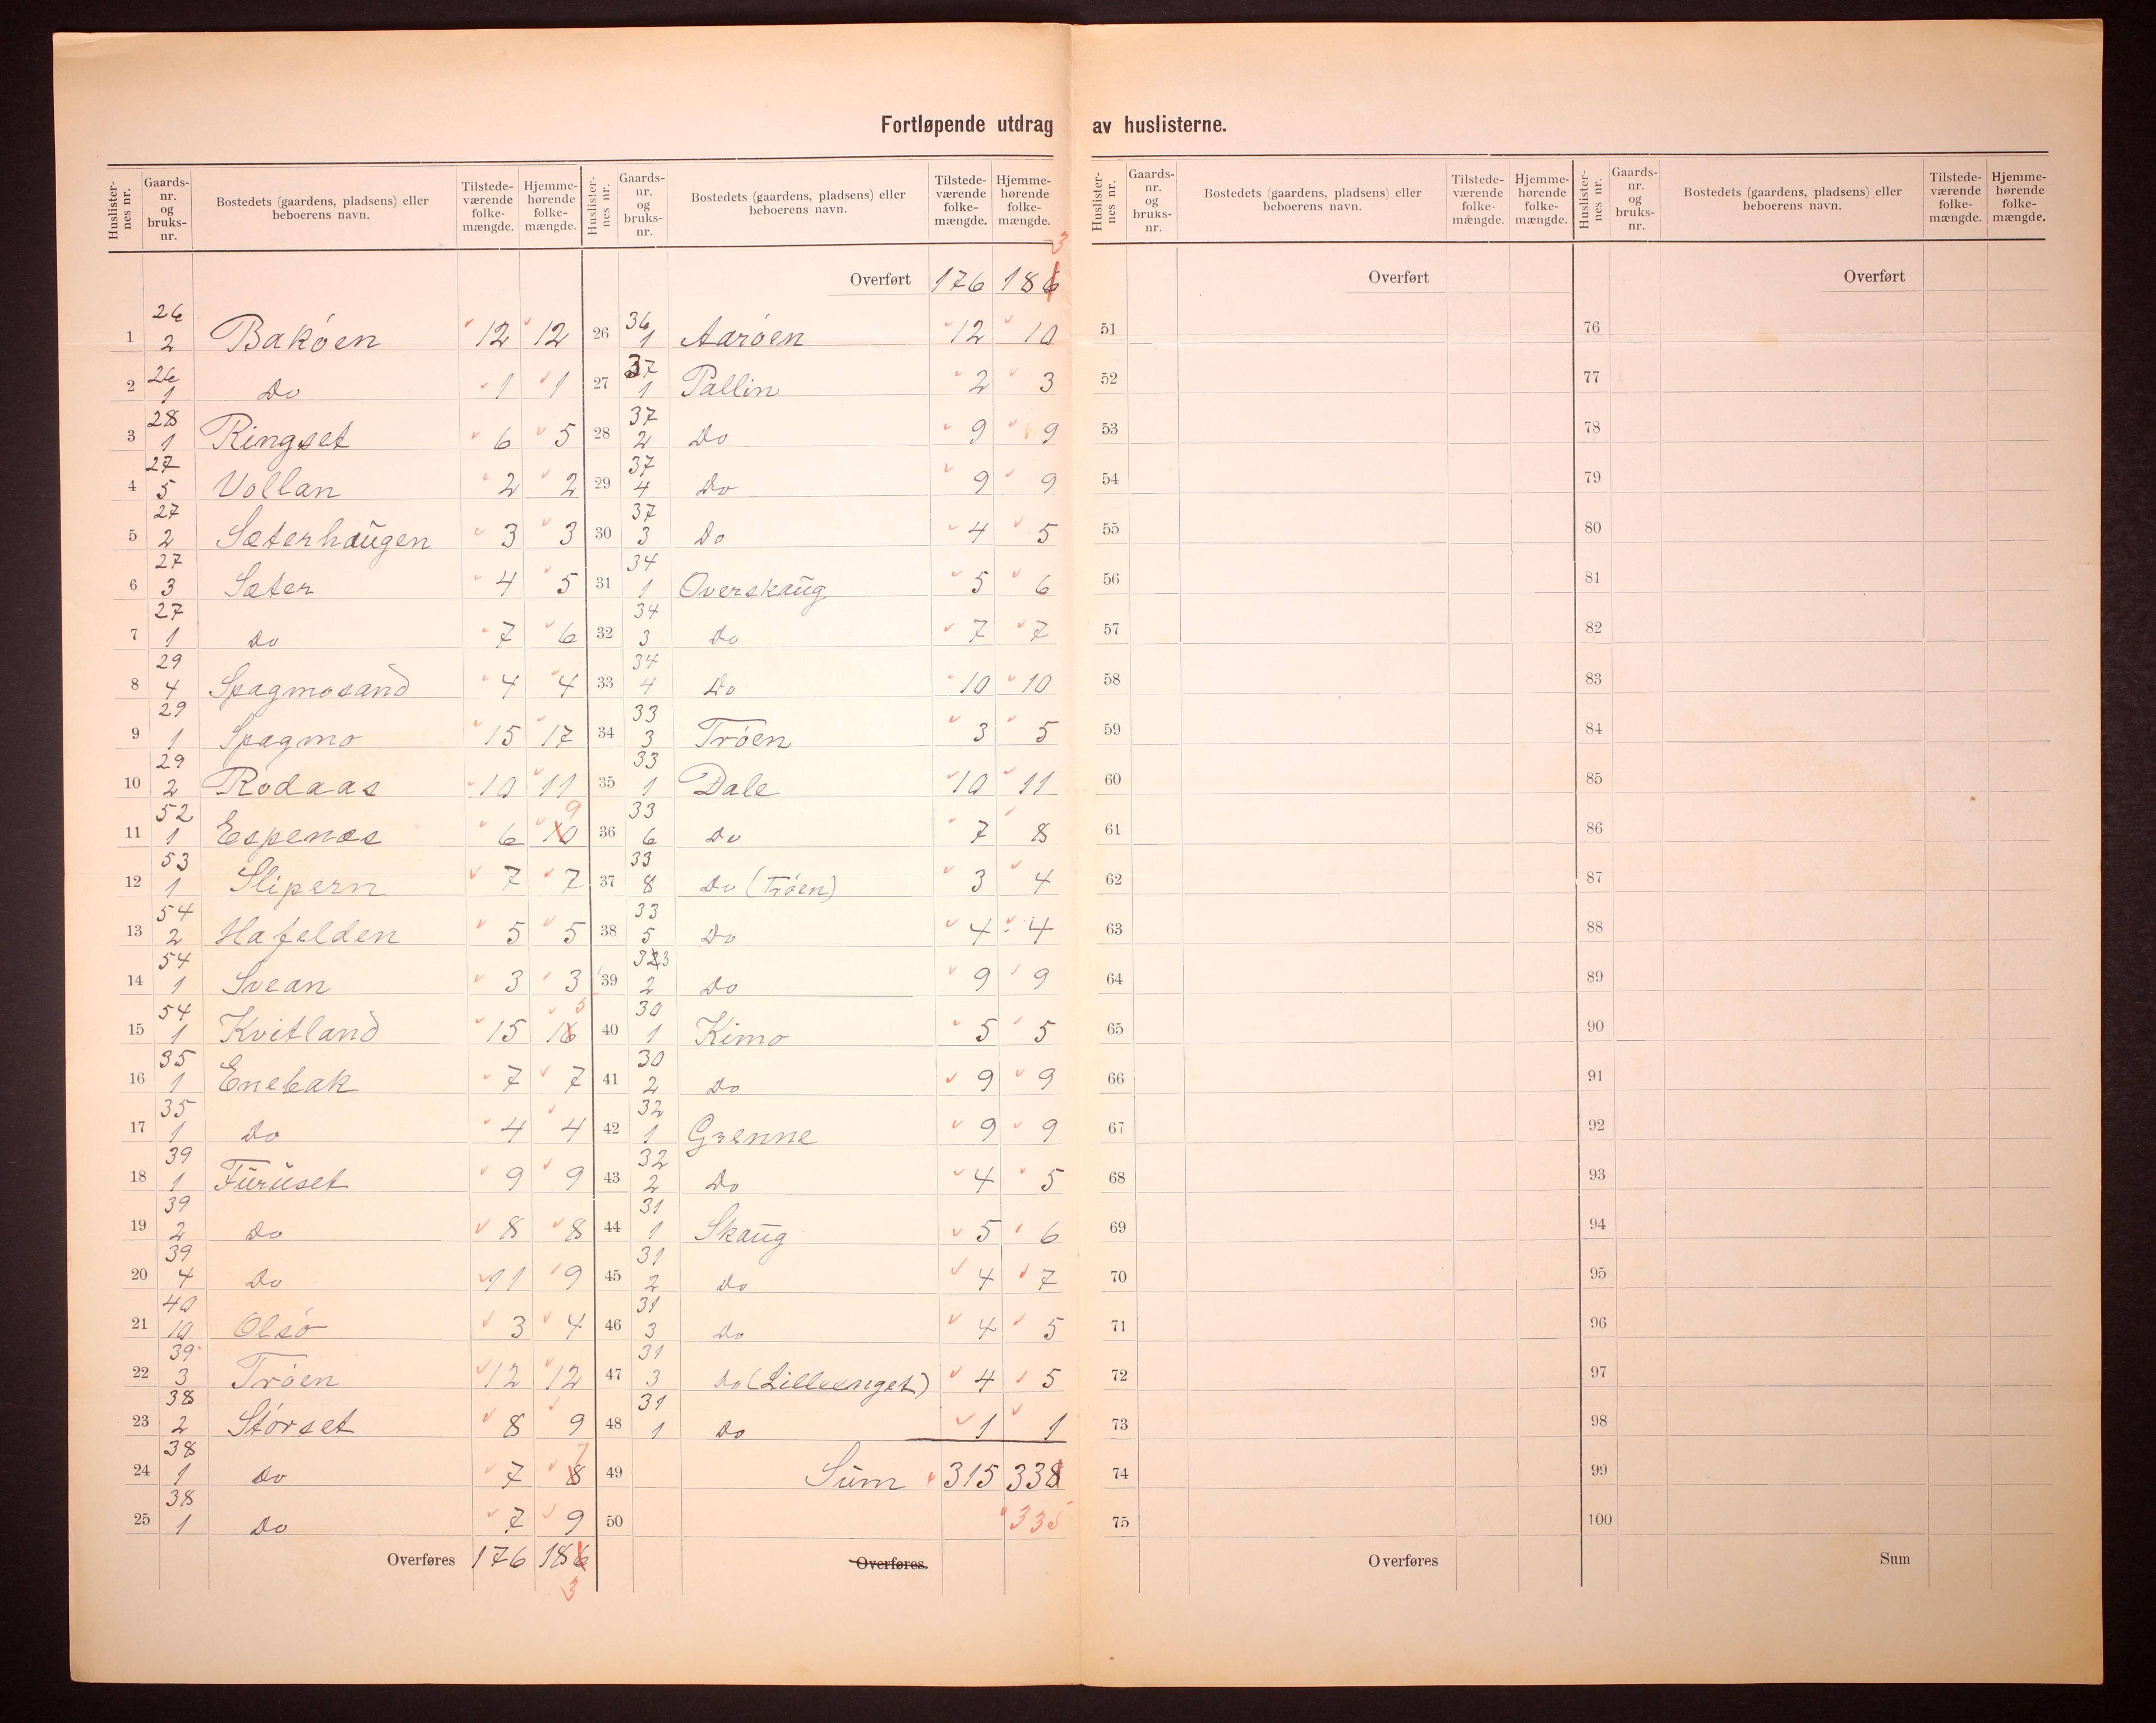 Fortløpende utdrag av huslisterne.
Huslister-nes nr. Gaards-nr. og bruks-nr. Bostedets (gaardens, pladsens) eller beboerens navn. Tilstede-værende folke-mængde. Hjemme-hørende folke-mængde.
1 26 2 Bakøen 12 12
2 26 1 Do 1 1
3 28 1 Ringset 6 5
4 27 5 Vollan 2 2
5 27 2 Sæterhaugen 3 3
6 27 3 Sæter 4 5
7 27 1 Do 7 6
8 29 4 Spagmosand 4 4
9 29 1 Spagmo 15 17
10 29 2 Rødaas 10 11
11 52 1 Espenes 6 10 9
12 53 1 Slipern 7 7
13 54 2 Hafelden 5 5
14 54 1 Svean 3 3
15 54 1 Kvitland 15 16 5
16 35 1 Enebak 7 7
17 35 1 Do 4 4
18 39 1 Furuset 9 9
19 39 2 Do 8 8
20 39 4 Do 11 9
21 40 10 Olsø 3 4
22 39 3 Trøen 12 12
23 38 2 Størset 8 9
24 38 1 Do 7 8 7
25 38 1 Do 7 9
Overføres 176 186 3
Huslister-nes nr. Gaards-nr. og bruks-nr. Bostedets (gaardens, pladsens) eller beboerens navn. Tilstede-værende folke-mængde. Hjemme-hørende folke-mængde.
Overført 176 186 3
26 36 1 Aarøen 12 10
27 37 1 Pallin 2 3
28 37 2 Do 9 9
29 37 4 Do 9 9
30 37 3 Do 4 5
31 34 1 Overskaug 5 6
32 34 3 Do 7 7
33 34 4 Do 10 10
34 33 3 Trøen 3 5
35 33 1 Dale 10 11
36 33 6 Do 7 8
37 33 8 Do (Trøen) 3 4
38 33 5 Do 4 4
39 33 2 Do 9 9
40 30 1 Kimo 5 5
41 30 2 Do 9 9
42 32 1 Grenne 9 9
43 32 2 Do 4 5
44 31 1 Skaug 5 6
45 31 2 Do 4 7
46 31 3 Do 4 5
47 31 3 Do (Lilleenget) 4 5
48 31 1 Do 1 1
49 Sum 315 338
50 335
Overføres.
Huslister-nes nr. Gaards-nr. og bruks-nr. Bostedets (gaardens, pladsens) eller beboerens navn. Tilstede-værende folke-mængde. Hjemme-hørende folke-mængde.
Overført
51
52
53
54
55
56
57
58
59
60
61
62
63
64
65
66
67
68
69
70
71
72
73
74
75
Overføres
Huslister-nes nr. Gaards-nr. og bruks-nr. Bostedets (gaardens, pladsens) eller beboerens navn. Tilstede-værende folke-mængde. Hjemme-hørende folke-mængde.
Overført
76
77
78
79
80
81
82
83
84
85
86
87
88
89
90
91
92
93
94
95
96
97
98
99
100
Sum